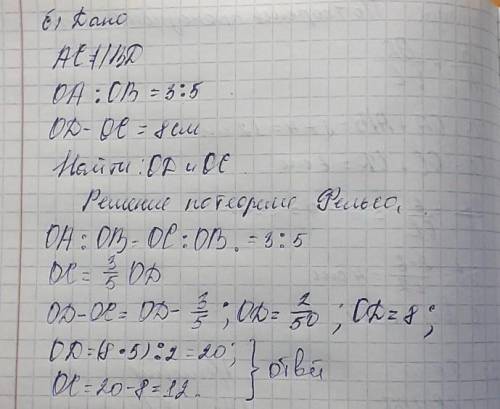 б) Дано
AC || BD
OA : OB = 3:5
OD - OC = 8см
Найти: OD и OC
Решение по теореме Фалеса,
OA : OB = OC : OB. = 3:5
OC = 3/5 OD
OD - OC = OD - 3/5; OD = 2/50; OD = 8;
OD = (8·5):2 = 20;
OC = 20 - 8 = 12.
ответ